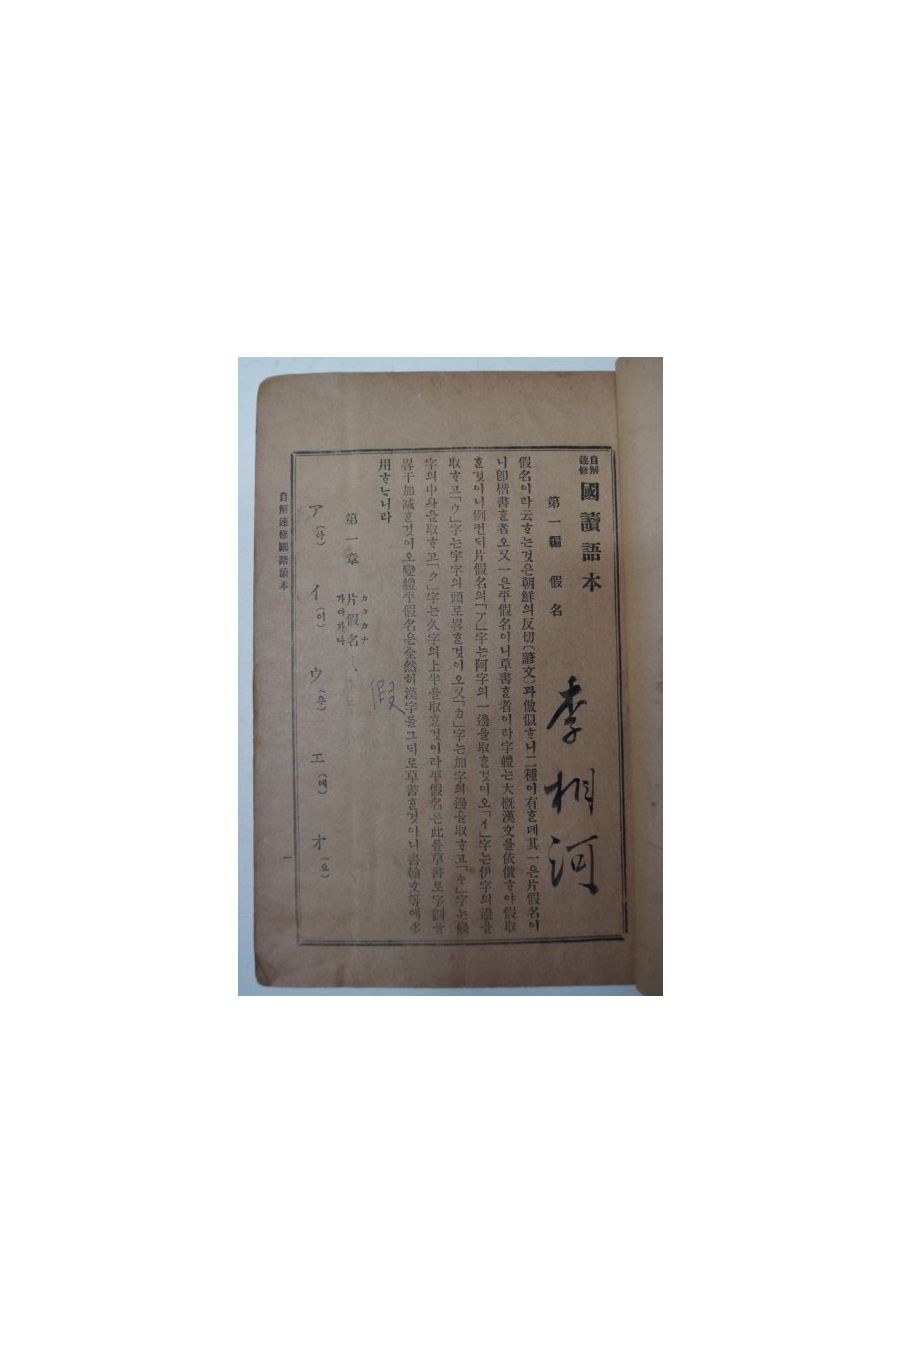 自解
速修
國讀語本
第一編 假名
李相河
假名이라云ᄒᆞᄂᆞᆫ것은朝鮮의反切(諺文)과倣似ᄒᆞ니二種이有ᄒᆞᆫ데其一은片假名이
니卽楷書ᄒᆞᆫ者오又一은平假名이니草書ᄒᆞᆫ者이라字體ᄂᆞᆫ大槪漢文을依倣ᄒᆞ야假取
ᄒᆞᆫ것이니例컨ᄃᆡ片假名의「ア」字ᄂᆞᆫ阿字의一邊을取ᄒᆞᆫ것이오「イ」字ᄂᆞᆫ伊字의邊을
取ᄒᆞ고「ウ」字ᄂᆞᆫ宇字의頭로畧ᄒᆞᆫ것이오又「カ」字ᄂᆞᆫ加字의邊을取ᄒᆞ고「キ」字ᄂᆞᆫ
字의中身을取ᄒᆞ고「ク」字ᄂᆞᆫ久字의上半을取ᄒᆞᆫ것이라平假名은此를草書로字劃을
畧干加減ᄒᆞᆫ것이오變體平假名은全然히漢字를그ᄃᆡ로草書ᄒᆞᆫ것이니書翰文等에多
用ᄒᆞᄂᆞ니라
假
第一章 片假名
カタカナ
가다가나
ア(아) イ(이) ウ(우) エ(에) オ(오)
自解速修國語讀本
一